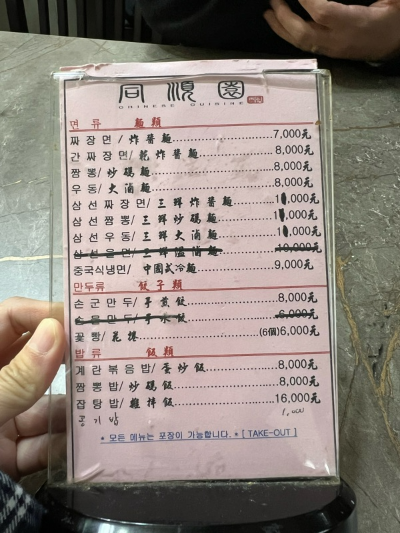 同順園
CHINESE CUISINE
면 류 麵類
짜 장 면 / 炸醬麵 7,000元
간 짜 장 면/ 乾炸醬麵 8,000元
짬 뽕/ 炒碼麵 8,000元
우 동/ 大滷麵 8,000元
삼 선 짜 장 면/ 三鲜炸醬麵
삼 선 짬 뽕/ 三鲜炒碼麵
삼 선 우 동/ 三鲜大滷麵
10,000元
중국식냉면/ 中國式冷麵 9,000元
만두류 餃子類
손 군 만 두/ 手煎餃 8,000元
6,000元
꽃 빵/ 花捲 (6個)6,000元
밥 류 飯類
계 란 볶 음 밥/ 蛋炒飯 8,000元
짬 뽕 밥/ 炒碼飯 8,000元
잡 탕 밥/ 雜拌飯 16,000元
공 기 밥 1,000
* 모든 메뉴는 포장이 가능합니다. * [ TAKE-OUT ]